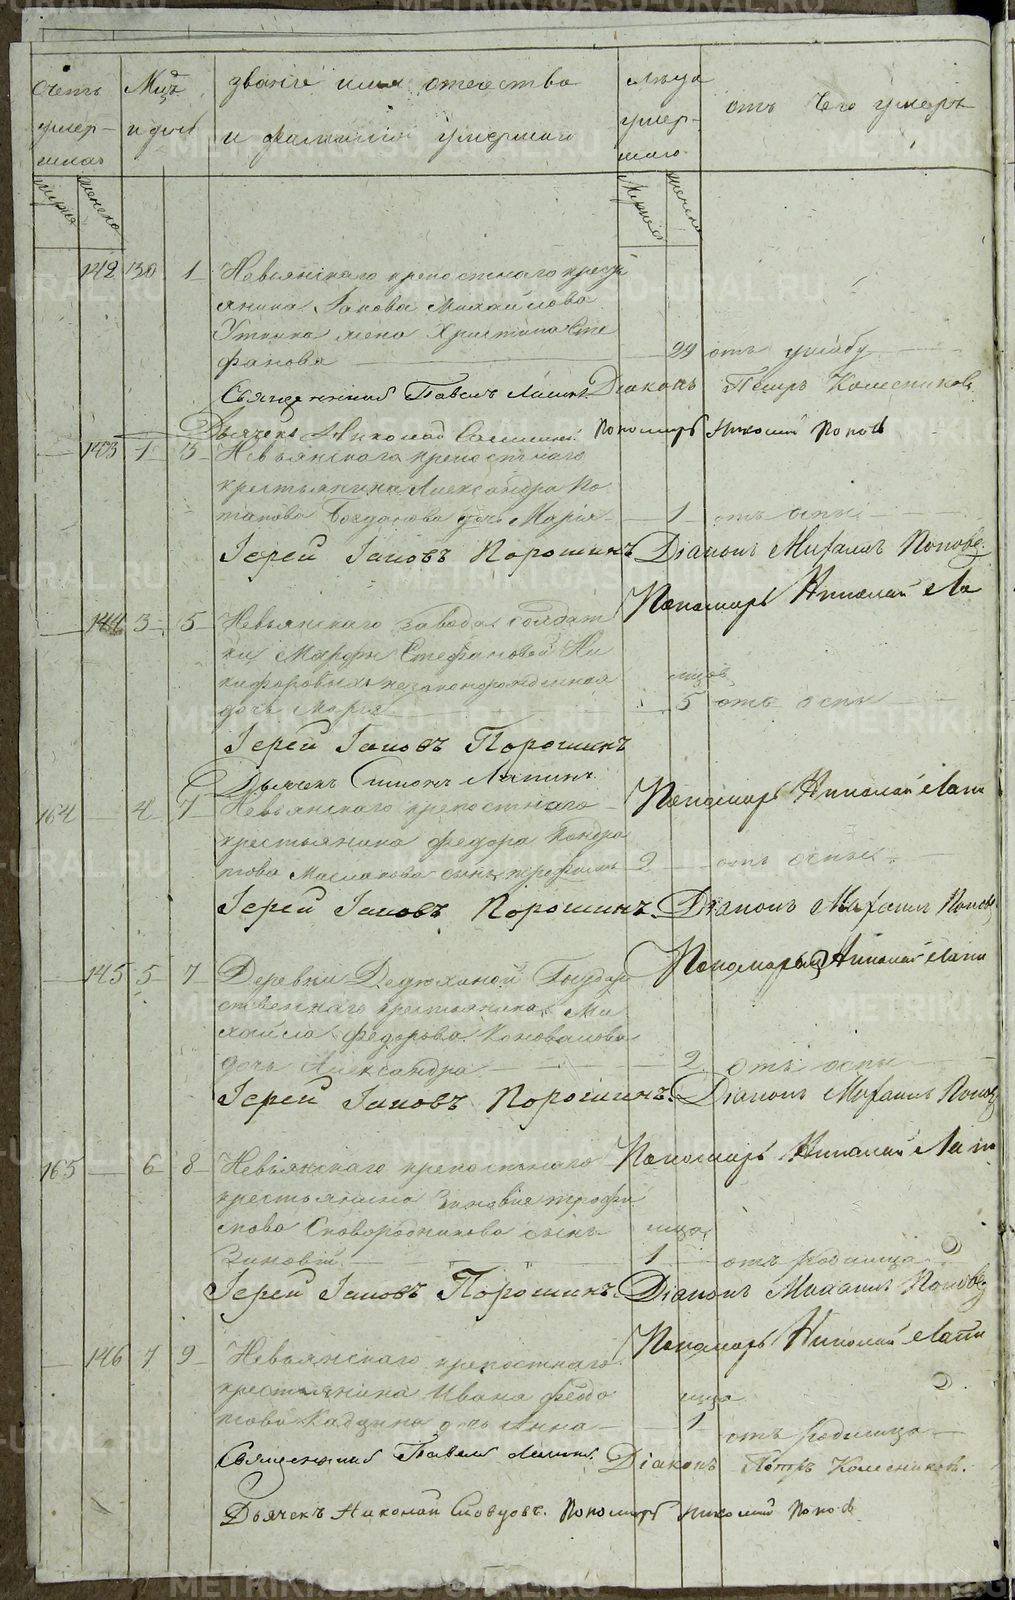 Счетъ умер-шихъ
Мцъ и дни
званiе имя отечество
и фамилiя умершаго
лѣта умер-шаго
отъ чего умеръ
мужеска
женска
мужеска
женска
142 30 1 Невьянскаго крепостнаго крест
янина Iакова Михайлова
Уткина жена Христина Сте
фанова 29 отъ ушибу
Священникъ Павелъ Дiаконъ Петръ Колесниковъ
Дьячекъ Николай Пономарь Николай Поповъ
143 1 3 Невьянскаго крепостнаго
крестьянина Александра По
тапова Богданова дочь Марiя 1 отъ оспы
Iерей Iаковъ Порошинъ Дiаконъ Михаилъ Поповъ
Пономарь Николай Ла
144 3 5 Невьянскаго завода солдат
ки Марфы Стефановой Ни
кифоровыхъ незаконорожденная мцов
дочь Марiя 5 отъ оспы
Iерей Iаковъ Порошинъ
Дьячекъ Симонъ Лапинъ
Пономарь Николай Лапи
164 4 7 Невьянскаго крепостнаго
крестьянина Федора Кондра
това Маслакова сынъ Трофимъ 2 отъ оспы
Iерей Iаковъ Порошинъ Дiаконъ Михаилъ Поповъ
Пономарь Николай Лапи
145 5 7 Деревни Государ
ственнаго крестьянина Ми
хайла Федорова Коновалова
дочь Александра 2 отъ оспы
Iерей Iаковъ Порошинъ Дiаконъ Михаилъ Поповъ
Пономарь Николай Лапи
165 6 8 Невьянскаго крепостнаго
крестьянина Зиновiя Трофи
мова Сковородникова сынъ мцъ
Зиновiй 1 отъ родимца
Iерей Iаковъ Порошинъ Дiаконъ Михаилъ Поповъ
Пономарь Николай Лапи
146 7 9 Невьянскаго крепостнаго
крестьянина Ивана Федо мца
това дочь Анна 1 отъ родимца
Священникъ Павелъ Дiаконъ Петръ Колесниковъ.
Дьячекъ Николай Словцовъ. Пономарь Николай Поповъ